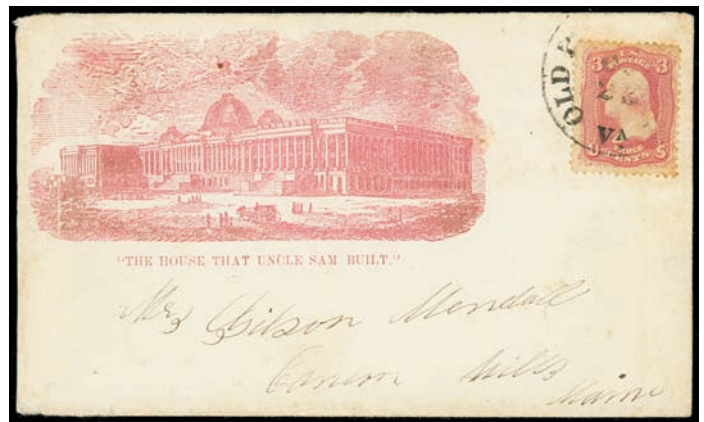 OLD P
VA
U.S. POSTAGE
3 3
THREE CENTS
"THE HOUSE THAT UNCLE SAM BUILT."
Mrs Gibson Mendall
Mills
Maine